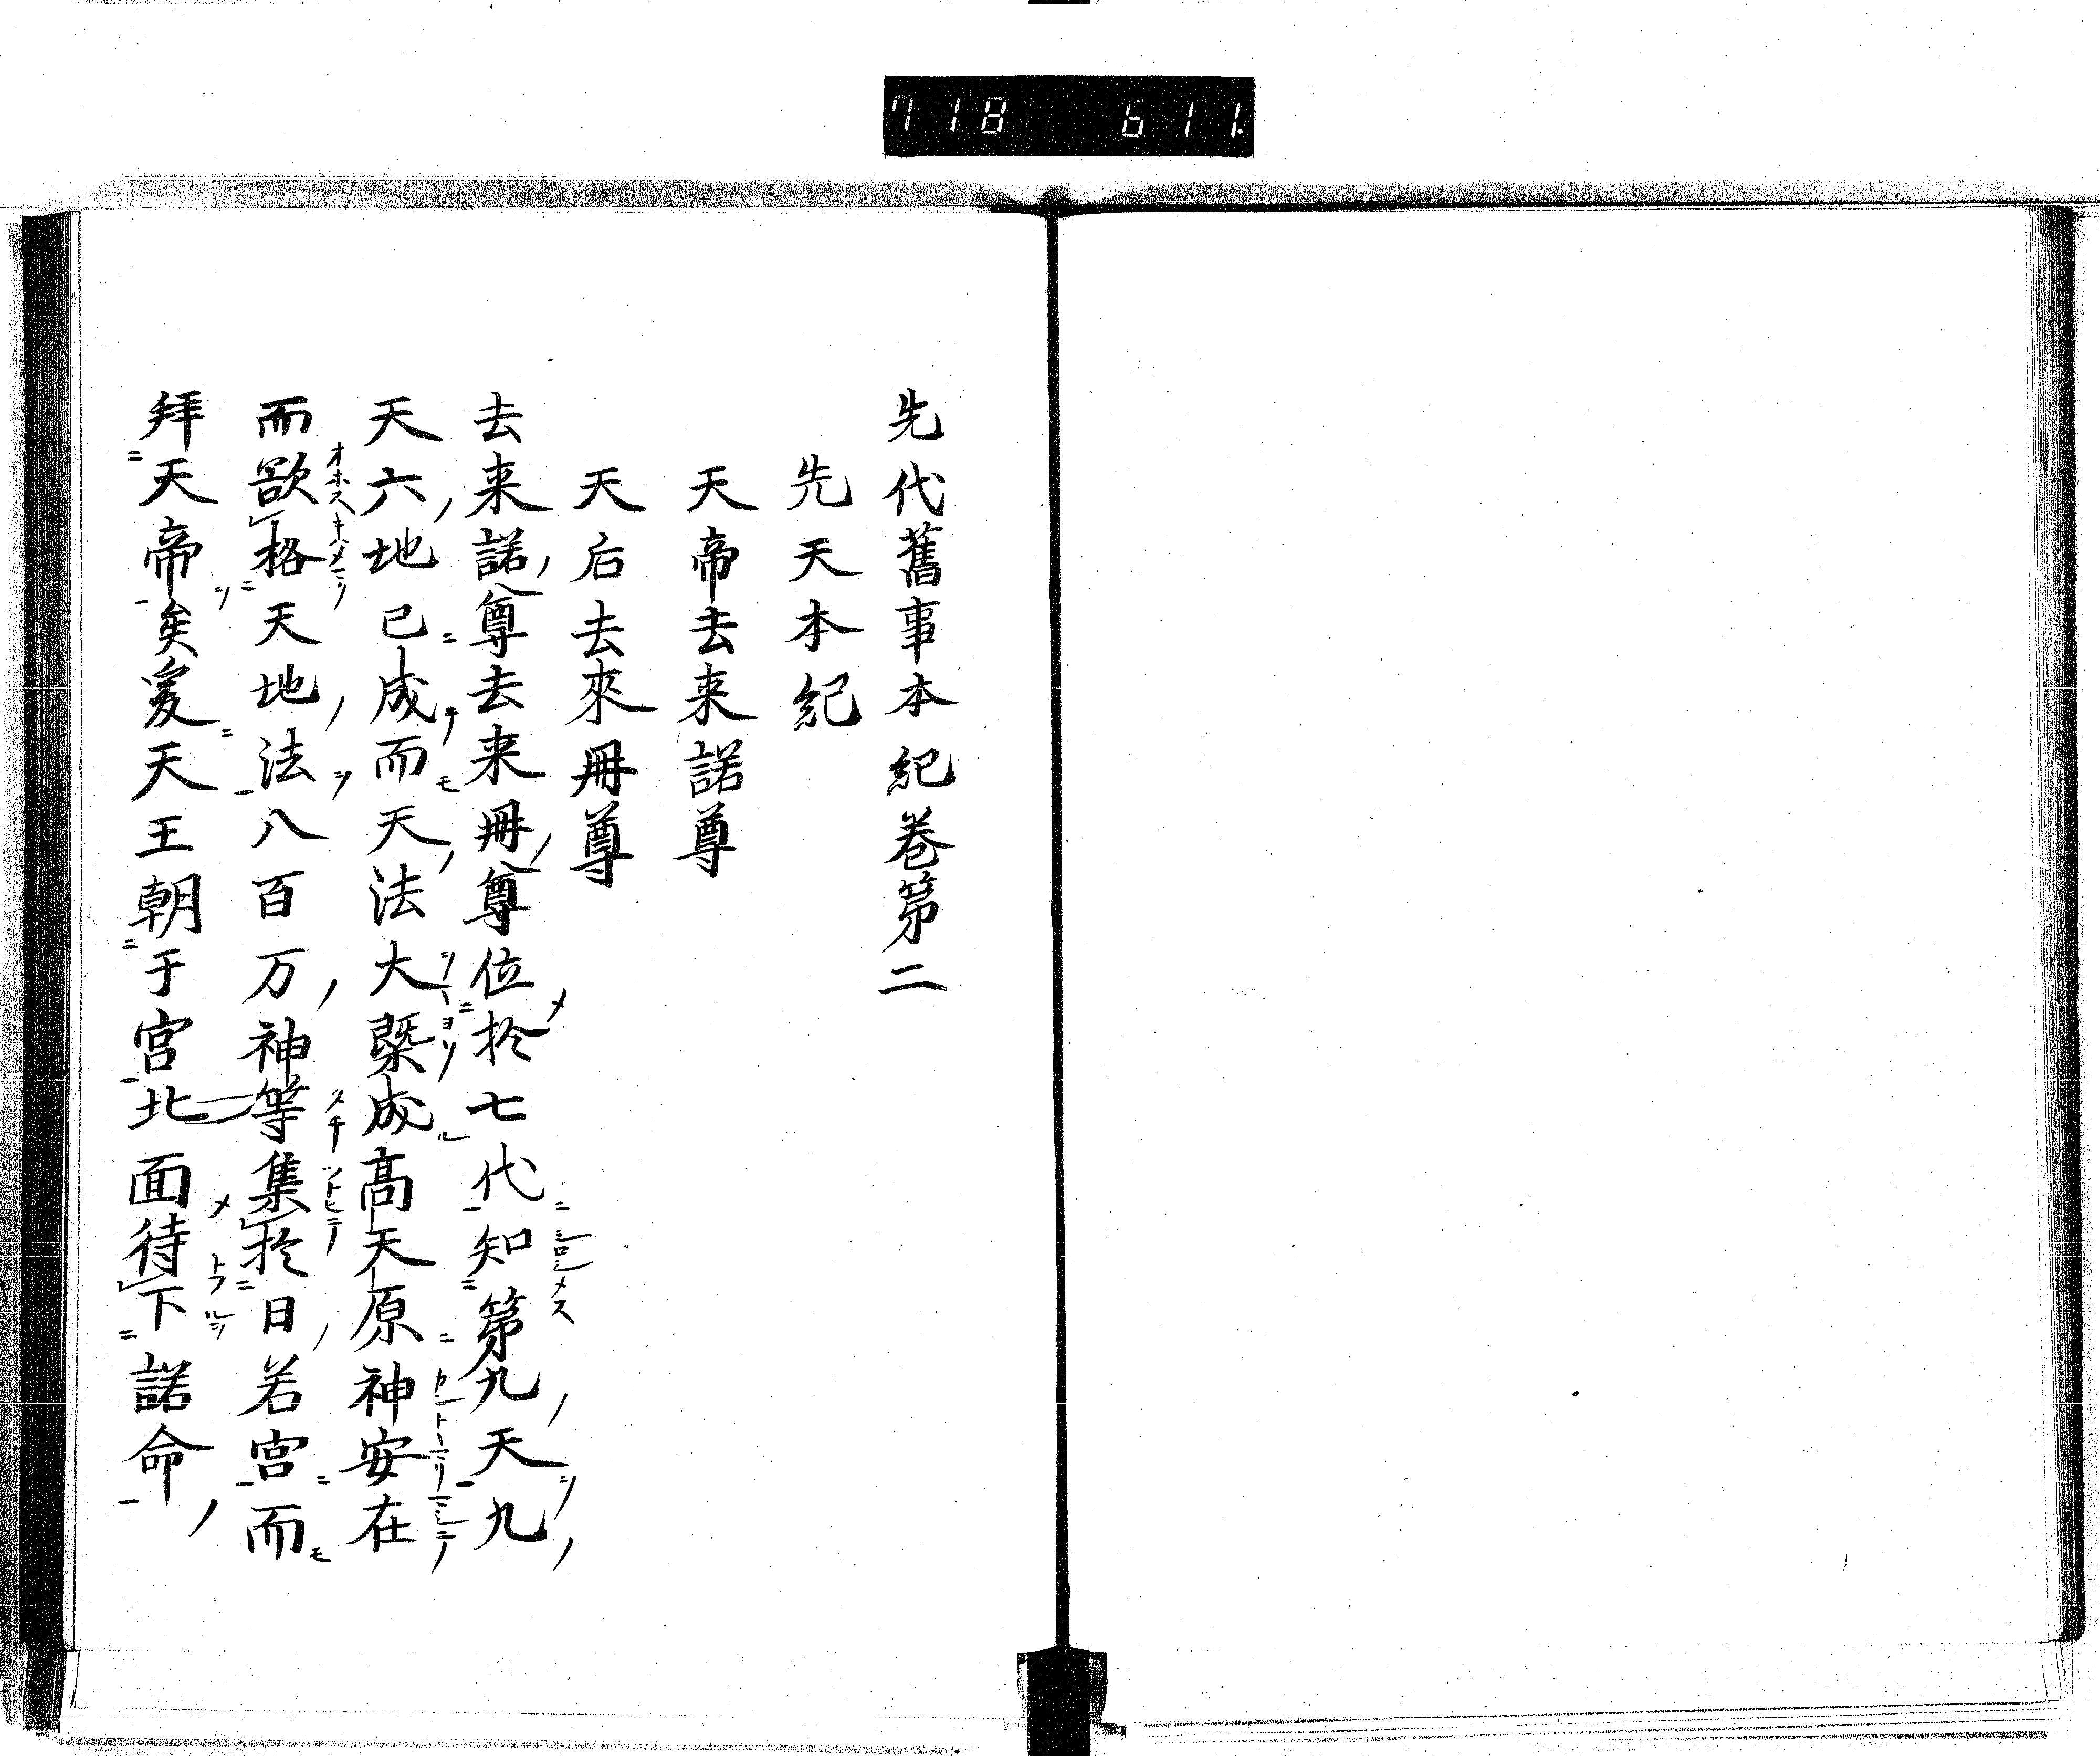 718 611.
先代舊事本紀卷第二
先天本紀
天帝去来諾尊
天后去來冊尊
去来諾尊去来冊尊位於七代知第九天九
天六地已成而天法大槩成高天原神安在
而欲格天地法八百万神等集於日若宮而
拜天帝矣爰天王朝于宮北面待下諾命